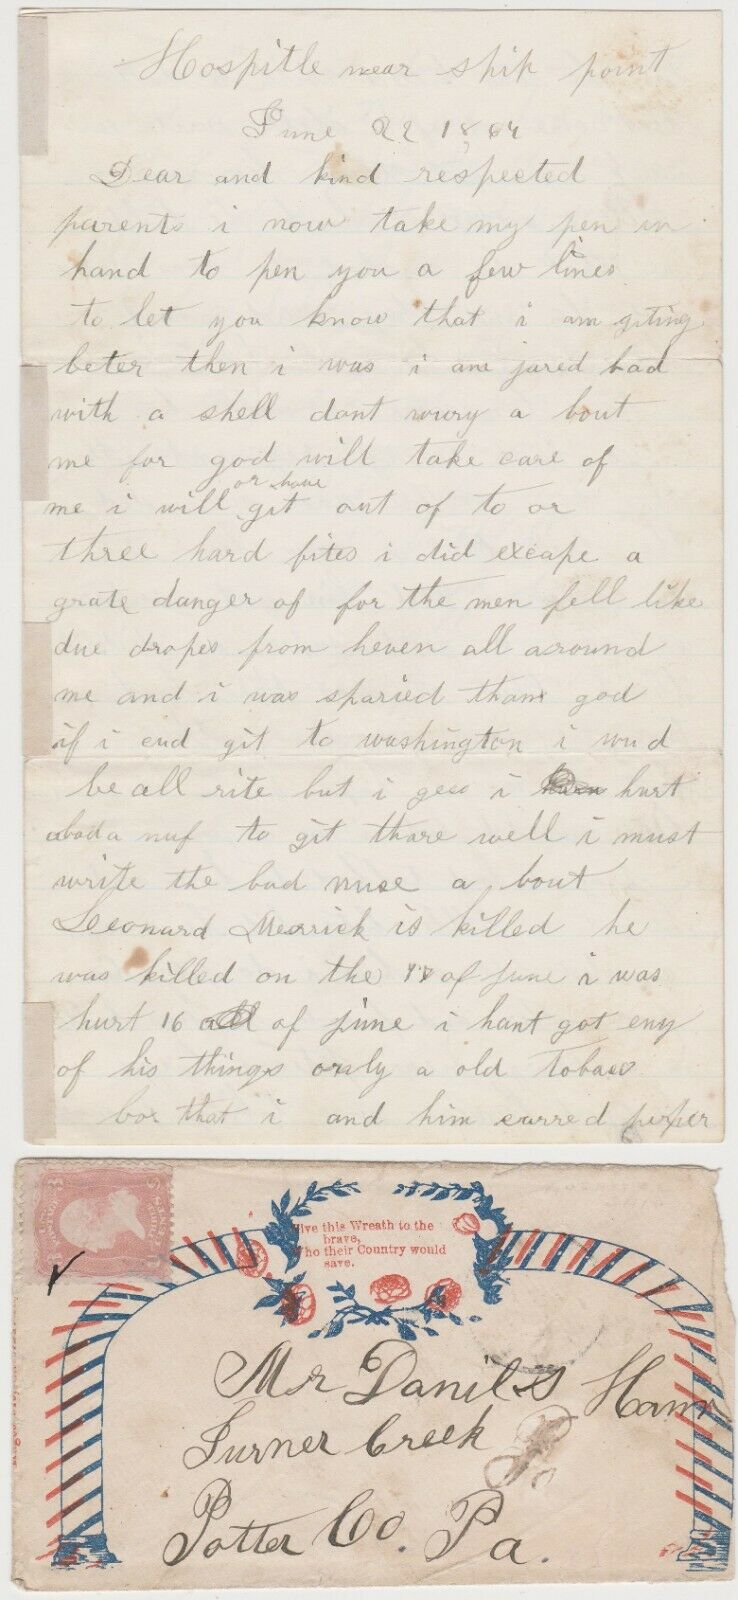 Hospitle near ship point
June 22 1864
Dear and kind respected
parents i now take my pen in
hand to pen you a few lines
to let you know that i am giting
beter then i was i ame jared bad
with a shell dont wury a bout
me for god will take care of
me i will or have git out of to or
three hard fites i did excape a
grate danger of for the men fell like
due dropes from heven all around
me and i was sparied thank god
if i cud git to washington i wud
be all rite but i gess i hurt
abad a nuf to git thare well i must
write the bad nuse a bout
Leonard Merrick is killed he
was killed on the of june i was
hurt 16 of june i hant got eny
of his things only a old tobaco
box that i and him carred peper
Give this Wreath to the
brave,
Who their Country would
save.
Mr Danil S Hamm
Turner Creek
Potter Co. Pa.